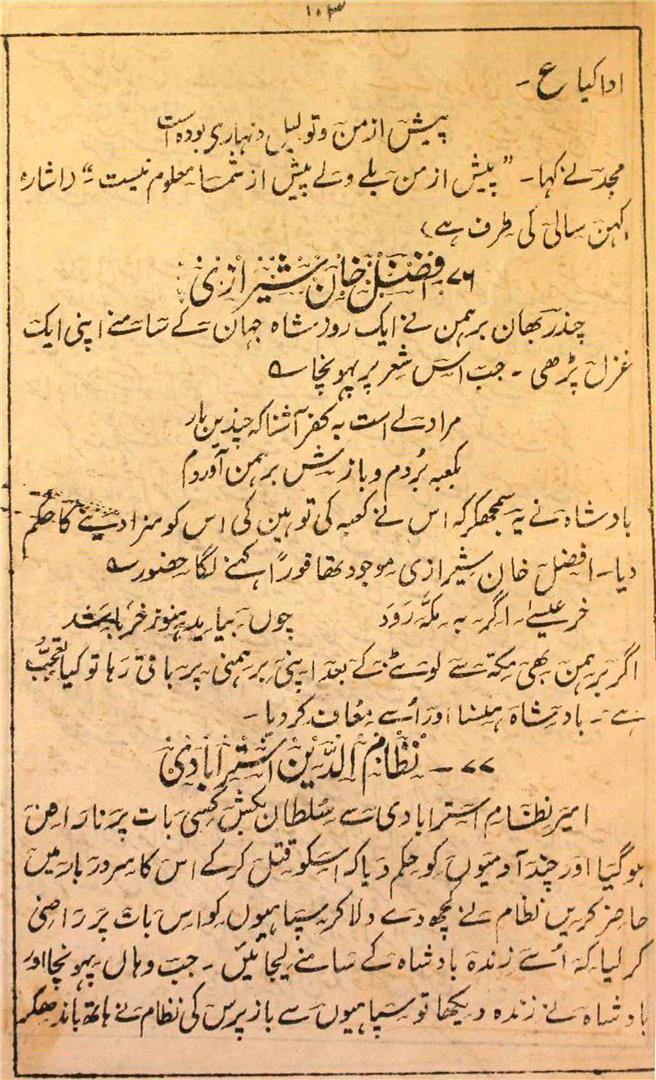 ۱۰۳
ادا کیا ع -
پیش از من و تو لیل و نہارے بودہ است
مجد نے کہا - "پیش از من بلے ولے پیش از شما معلوم نیست" - (اشارہ
کہن سالی کی طرف ہے)
۷۶ - افضل خان شیرازی
چندر بھان برہمن نے ایک روز شاہ جہان کے سامنے اپنی ایک
غزل پڑھی - جب اس شعر پر پہونچا ؎
مرا دلے است بہ کفر آشنا کہ چندین بار
بکعبہ بُردم و بازش برہمن آوردم
بادشاہ نے یہ سمجھکر کہ اس نے کعبہ کی توہین کی اس کو سزا دینے کا حکم
دیا - افضل خان شیرازی موجود تھا فوراً کہنے لگا حضور ؎
خر عیسےٰ اگر بہ مکّہ رود چوں بیاید ہنوز خر باشد
اگر برہمن بھی مکّہ سے لوٹنے کے بعد اپنی برہمنی پر باقی رہا تو کیا تعجّب
ہے - بادشاہ ہنسا اور اُسے معاف کر دیا -
۷۷ - نظام الدّین استرابادی
امیر نظام استرابادی سے سلطان تکش کسی بات پر ناراض
ہو گیا اور چند آدمیوں کو حکم دیا کہ اسکو قتل کر کے اس کا سر دربار میں
حاضر کریں نظام نے کچھ دے دلا کر سپاہیوں کو اس بات پر راضی
کر لیا کہ اُسے زندہ بادشاہ کے سامنے لیجائیں - جب وہاں پہونچا اور
بادشاہ نے زندہ دیکھا تو سپاہیوں سے باز پرس کی نظام نے ہاتھ باندھکر